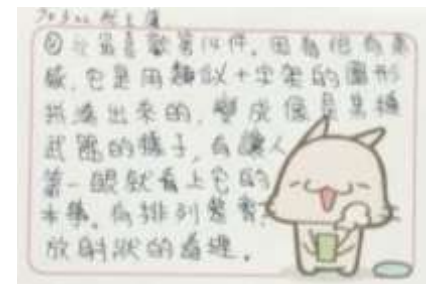 ②我最喜歡第14件，因為他有美
感，它是用類似十字架的圖形
拼湊出來的，變成像是某種
武器的樣子，有讓人
第一眼就看上它的
本事，有排列整齊
放射狀的處理。